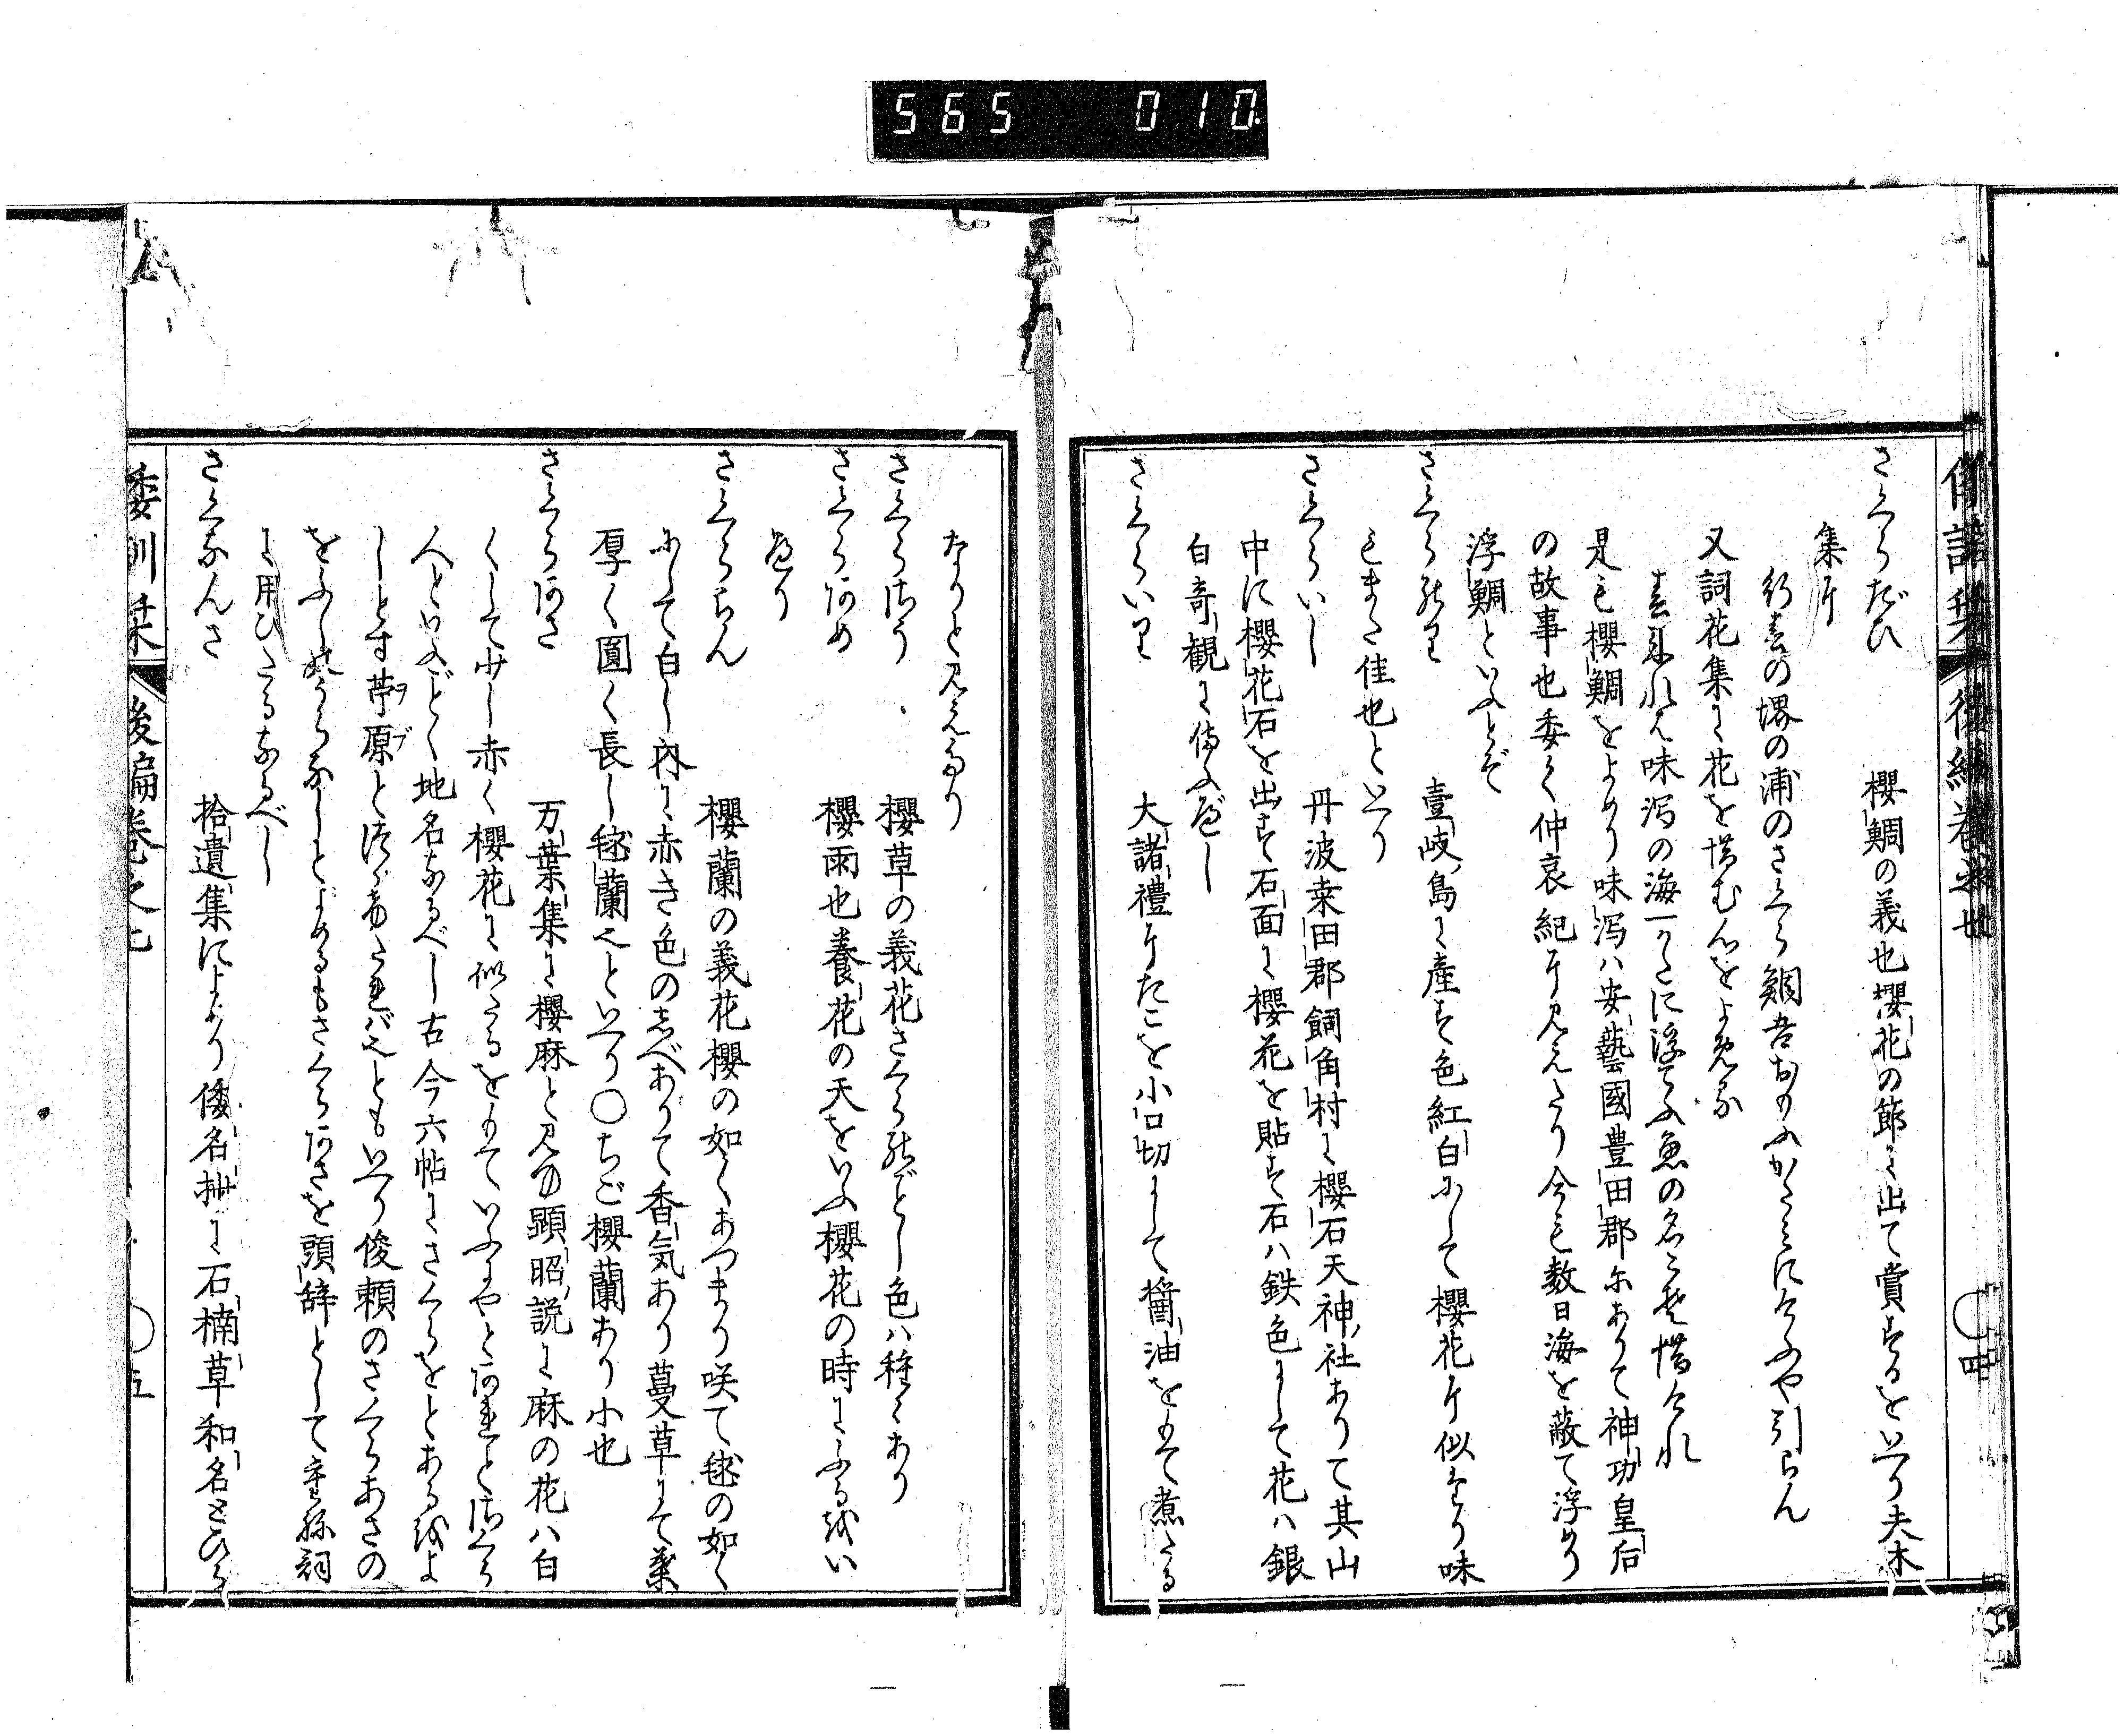 565 010
さくらだひ 櫻鯛の義也櫻花の節に出て賞するをいへり夫木
集に
行春の堺の浦のさくら鯛あかぬかたみにけふや引らん
又詞花集に花を惜む心をよめる
春来れは味潟の海一かたに浮てふ魚の名こそ惜けれ
是も櫻鯛をよめり味潟ハ安藝國豊田郡にありて神功皇后
の故事也委く仲哀紀に見えたり今も数日海を蔽て浮めり
浮鯛といふとぞ
さくらのり 壹岐島に産す色紅白にして櫻花に似たり味
もまた佳也といへり
さくらいし 丹波桑田郡飼角村に櫻石天神社ありて其山
中に櫻花石を出す石面に櫻花を貼す石ハ鉄色にして花ハ銀
白奇観に侍ふべし
さくらいり 大諸禮にたこを小口切にして醤油をもて煮たる
なりと見えたり
さくらさう 櫻草の義花さくらのごとし色ハ種々あり
さくらあめ 櫻雨也養花の天をいふ櫻花の時にふる故い
へり
さくららん 櫻蘭の義花櫻の如くあつまり咲て毬の如く
にして白し内に赤き色のしべありて香気あり蔓草にて葉
厚く圓く長し毬蘭也といへり〇ちご櫻蘭あり小也
さくらあさ 万葉集に櫻麻と見ゆ顕昭説に麻の花ハ白
くして少し赤く櫻花に似たるをもていふにやとあれとさくら
人といふごとく地名なるべし古今六帖にさくらをとある故よ
しとす苧原とつゞきたれバ也ともいへり俊頼のさくらあさの
をふのうらなみとよめるもさくらあさを頭辞として重ね詞
に用ひたるなるべし
さくなんさ 拾遺集によめり倭名抄に石楠草和名とひら
倭訓栞 後編巻之七 〇五